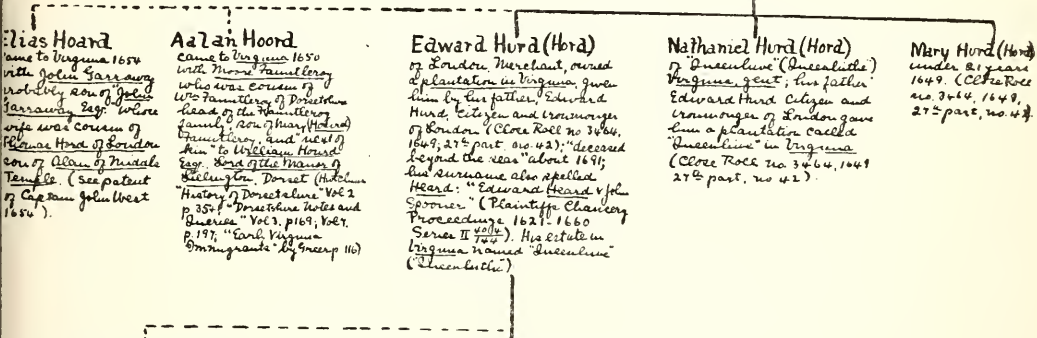 Elias Hoard
came to Virginia 1654
with John Garraway
probably son of "John
Garraway Esqr. whose
wife was cousin of
Thomas Hord of London
son of Alan of Middle
Temple. (See patent
of Captain John West
1654).
Aalan Hoord
came to Virginia 1650
with Moore Fauntleroy
who was cousin of
Wm Fauntleroy of Dorsetshire
head of the Fauntleroy
family, son of Mary (Hourd)
Fauntleroy, and "next of
kin" to William Hourd
Esqr. Lord of the Manor of
Dorset (Hutchins
"History of Dorsetshire" Vol 2
p. 354; "Dorsetshire Notes and
Queries" Vol 3, p 169; Vol 4,
p. 197; "Early Virginia
Immigrants" by Greer p 116)
Edward Hurd (Hord)
of London, Merchant, owned
a plantation in Virginia given
him by his father, Edward
Hurd, Citizen and ironmonger
of London (Close Roll no 3464,
1649; 27th part, no. 42); "deceased
beyond the seas" about 1691;
his surname also spelled
Heard: "Edward Heard v John
Spooner" (Plaintiffs Chancery
Proceedings 1621-1660
Series II 144). His estate in
Virginia named "Queenhive"
("Queenhithe")
Nathaniel Hurd (Hord)
of "Queenhive" (Queenhithe)
Virginia, gent; his father
Edward Hurd Citizen and
ironmonger of London gave
him a plantation called
"Queenhive" in Virginia
(Close Rock no. 3464, 1649
27th part, no 42).
Mary Hurd (Hord)
under 21 years
1649. (Close Roll
no. 3464, 1649,
27th part, no. 42.